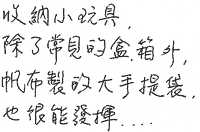 收納小玩具,
除了常見的盒.箱外,
帆布製的大手提袋,
也很能發揮....